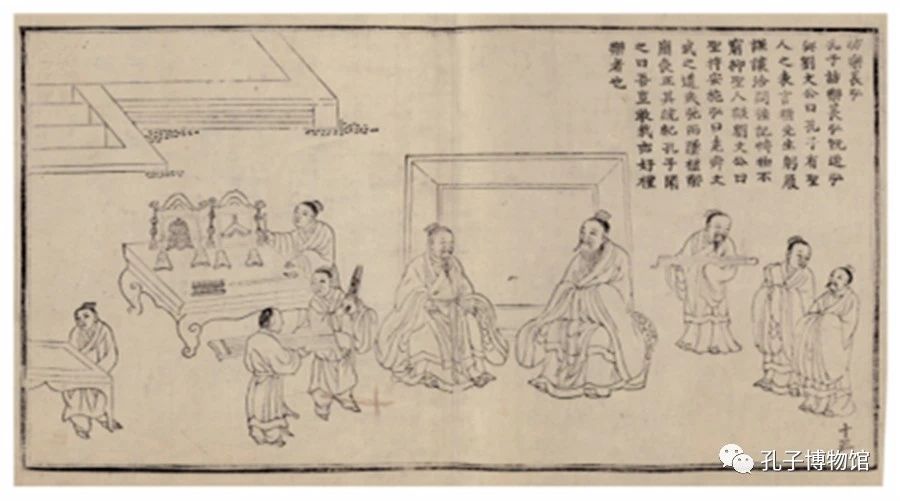 訪樂萇弘
孔子訪樂萇弘既退弘
語劉文公曰孔子有聖
人之表言稱先生躬履
謙讓洽聞強記博物不
窮抑聖人歟劉文公曰
聖將安施弘曰堯舜文
武之道或弛而墜禮樂
崩喪正其統紀孔子聞
之曰吾豈敢哉亦好禮
樂者也
十
孔子博物馆